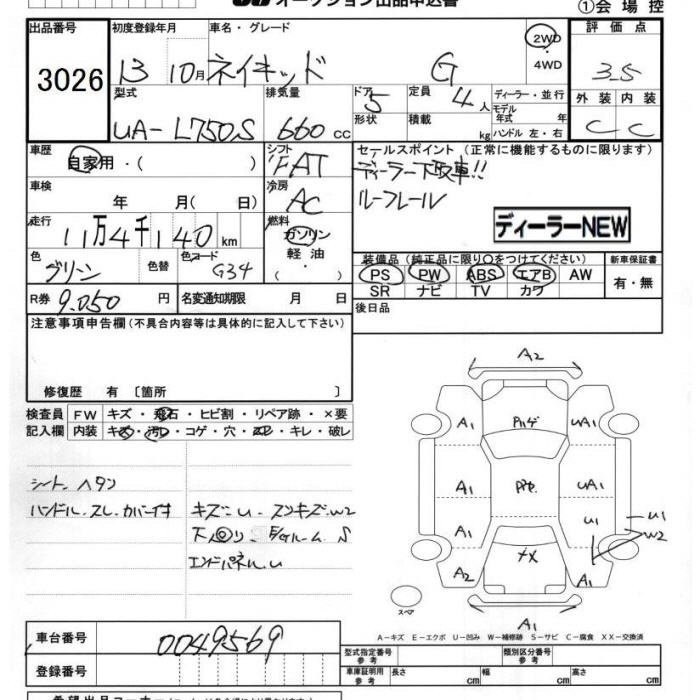 オークション出品申込書
①会場控
出品番号 初度登録年月 車名・グレード 2WD 評価点
3026 13 10月 ネイキッド G ・4WD 3.5
型式 排気量 ドア 定員 ディーラー・並行 外装 内装
UA-L750S 660 cc 5 4人 モデル年式 年 C C
形状 積載 kg ハンドル 左・右
車歴 シフト セールスポイント (正常に機能するものに限ります)
自家用・( ) FAT ディーラー下取車!!
車検 冷房 ルーフレール
年 月( 日) AC
走行 燃料 ディーラーNEW
11万4千140km ガソリン
色 色替 色コード 軽油・ 装備品(純正品に限り○をつけてください) 新車保証書
グリーン G34 ( ) PS PW ABS エアB AW 有・無
R券 9.050円 名変通知期限 月 日 SR ナビ TV カワ
後日品
注意事項申告欄(不具合内容等は具体的に記入して下さい)
修復歴 有 〔箇所 〕
検査員 FW キズ・飛石・ヒビ割・リペア跡・×要
記入欄 内装 キズ・汚レ・コゲ・穴・スレ・キレ・破レ
シート. ヘタシ
ハンドル. スレ. カバー付
キズ. U. スンキズ. W2
下回り. E/Gルーム. S
エンドパネル. U
A2
A1 Pハゲ UA1
A1 UA1
A1 U1 U1
W2
A2 メX A1
スペア
A1
A-キズ E-エクボ U-凹み W-補修跡 S-サビ C-腐食 XX-交換済
車台番号 0049569
登録番号
型式指定番号 参考 類別区分番号 参考
車庫証明用 参考 長さ 幅 高さ cm